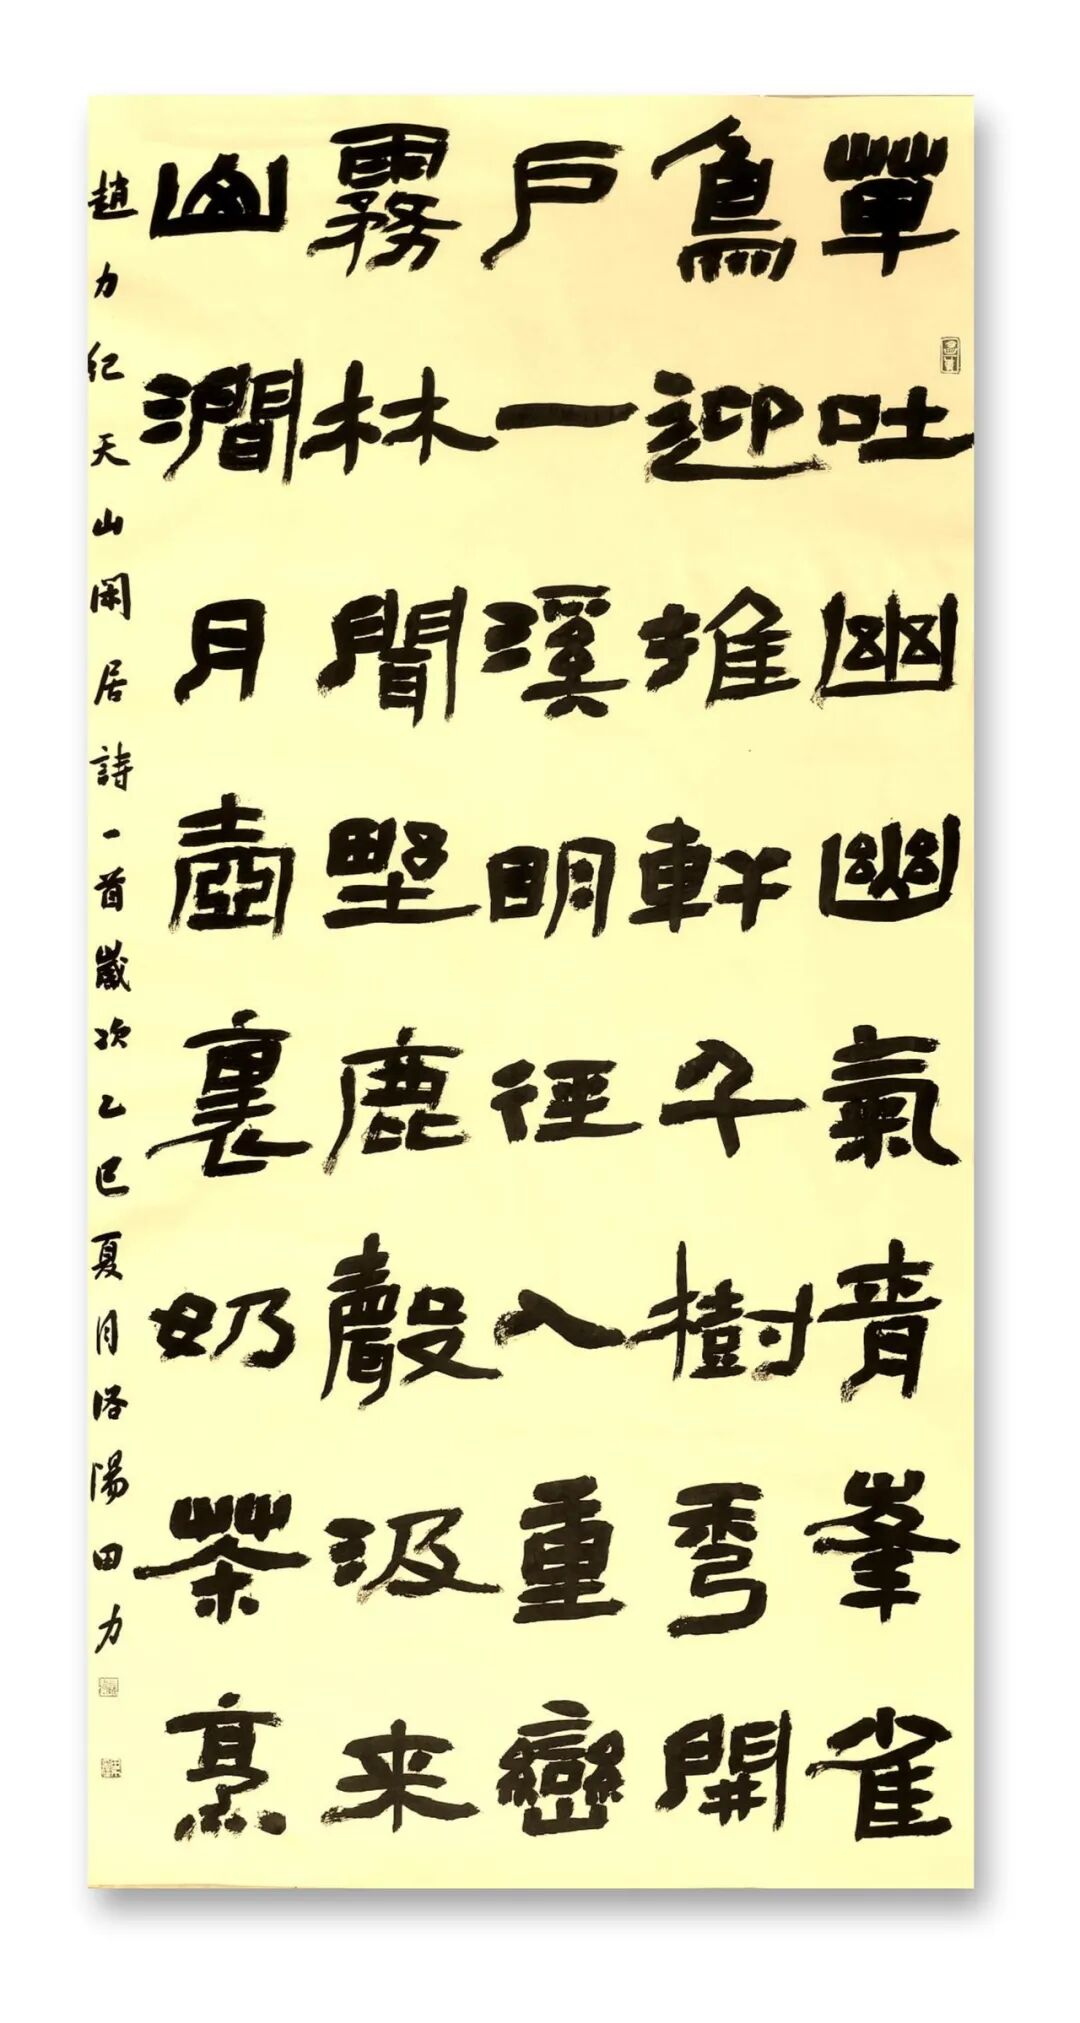 草吐幽幽氣青峯雀
鳥迎推軒千樹秀開
戶一溪明徑入重巒
霧林聞野鹿聲汲来
山澗月壺裏奶茶烹
趙力紀天山閑居詩一首歲次乙巳夏月洛陽田力